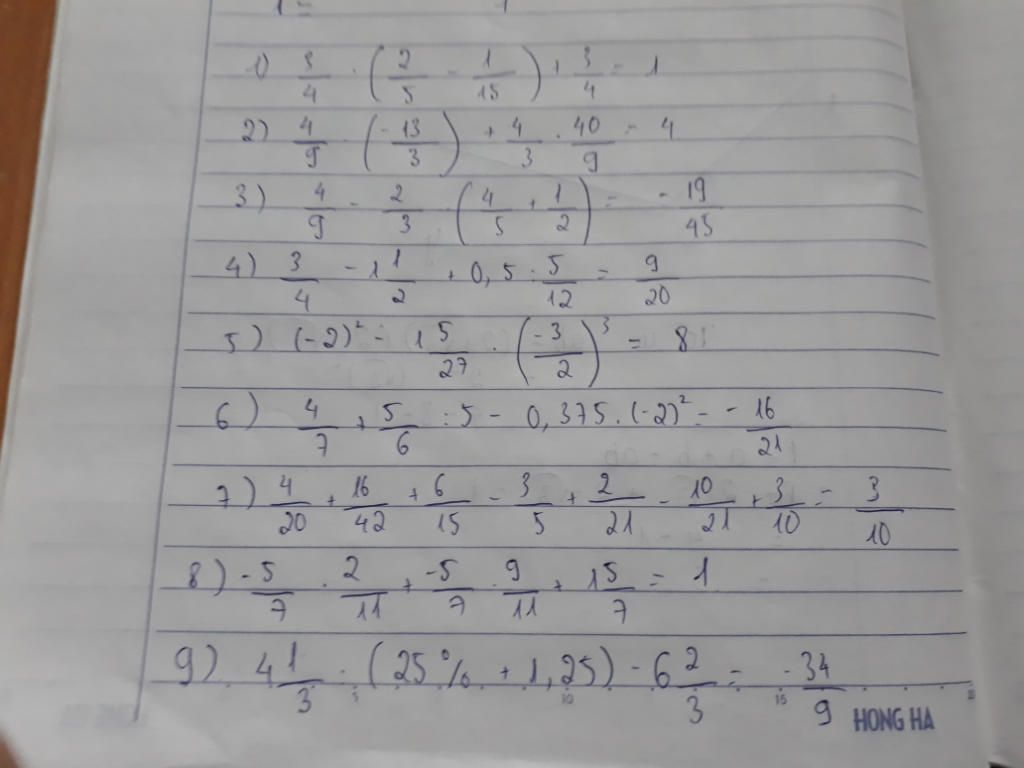 1) 3/4 · (2/5 - 1/15) + 3/4 = 1
2) 4/9 · (-13/3) + 4/3 · 40/9 = 4
3) 4/9 - 2/3 · (4/5 + 1/2) = -19/45
4) 3/4 - 1 1/2 + 0,5 : 5/12 = 9/20
5) (-2)² - 1 5/27 · (-3/2)³ = 8
6) 4/7 + 5/6 : 5 - 0,375 · (-2)² = -16/21
7) 4/20 + 16/42 + 6/15 - 3/5 + 2/21 - 10/21 + 3/10 = 3/10
8) -5/7 · 2/11 + -5/7 · 9/11 + 1 5/7 = 1
9) 4 1/3 : (25% + 1,25) - 6 2/3 = -34/9
5 10 15
HONG HA